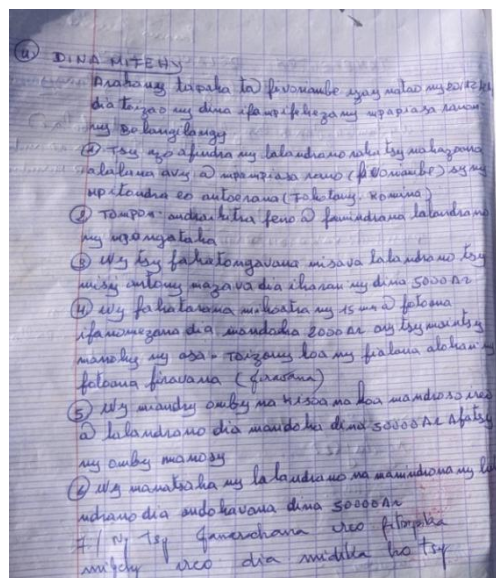 ④ DINA MITEHY
Araka ny tapaka tao fivoriambe izay natao ny 20/12
dia toizao ny dina ifampifehezan'ny mpapiasa ranon
ny Bolangilangy
① Tsy azo afindra ny lalandrano raha tsy nahazoana
alalana avy @ mpampiasa rano (fivoriambe) sy ny
mpitondra eo antoerana (Fokotany. Komina)
② Tompon-andraikitra feno @ famindrana lalandrano
ny mpangataka
③ Ny tsy fahatongavana miasa lalandrano tsy
misy antony mazava dia iharan'ny dina 5000 Ar
④ Ny fahatarana mihoatra ny 15 mn @ fotoana
ifanomezana dia mandoha 2000 Ar ary tsy maintsy
manohy ny asa. Toizany koa ny fialana alohan'ny
fotoana firavana
⑤ Ny miandry omby na kisoa na koa mandroso ireo
@ lalandrano dia mandoha dina 50000 Ar Afatsy
ny omby manosy
⑥ Ny manatsaka ny lalandrano na mamindrona ny lala
ndrano dia andohavana dina 50000 Ar
7./ Ny Tsy fanarahana ireo fitsipika
mitehy ireo dia midika ho tsy